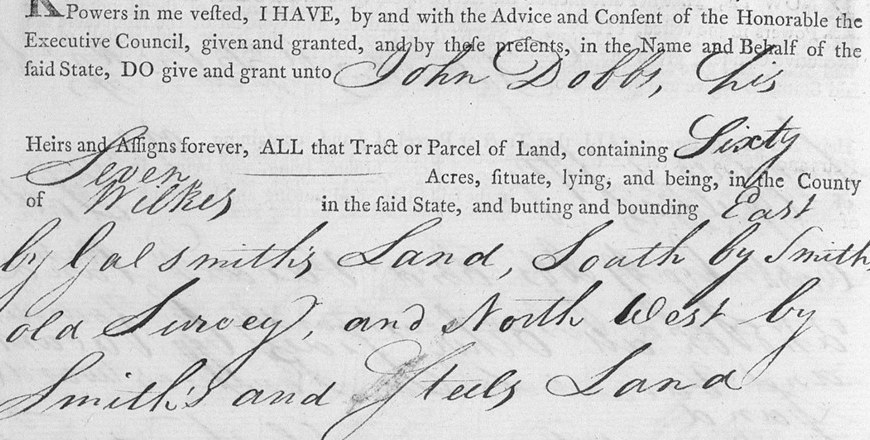 Powers in me vested, I HAVE, by and with the Advice and Consent of the Honorable the
Executive Council, given and granted, and by these presents, in the Name and Behalf of the
said State, DO give and grant unto John Dobbs, his
Heirs and Assigns forever, ALL that Tract or Parcel of Land, containing Sixty
Seven Acres, situate, lying, and being, in the County
of Wilkes in the said State, and butting and bounding East
by Galsmith's Land, South by Smith
old Survey, and North West by
Smith's and Steels Land